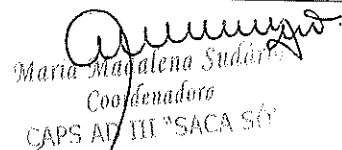 Maria Madalena Sudário
Coordenadora
CAPS AD III "SACA SÓ"